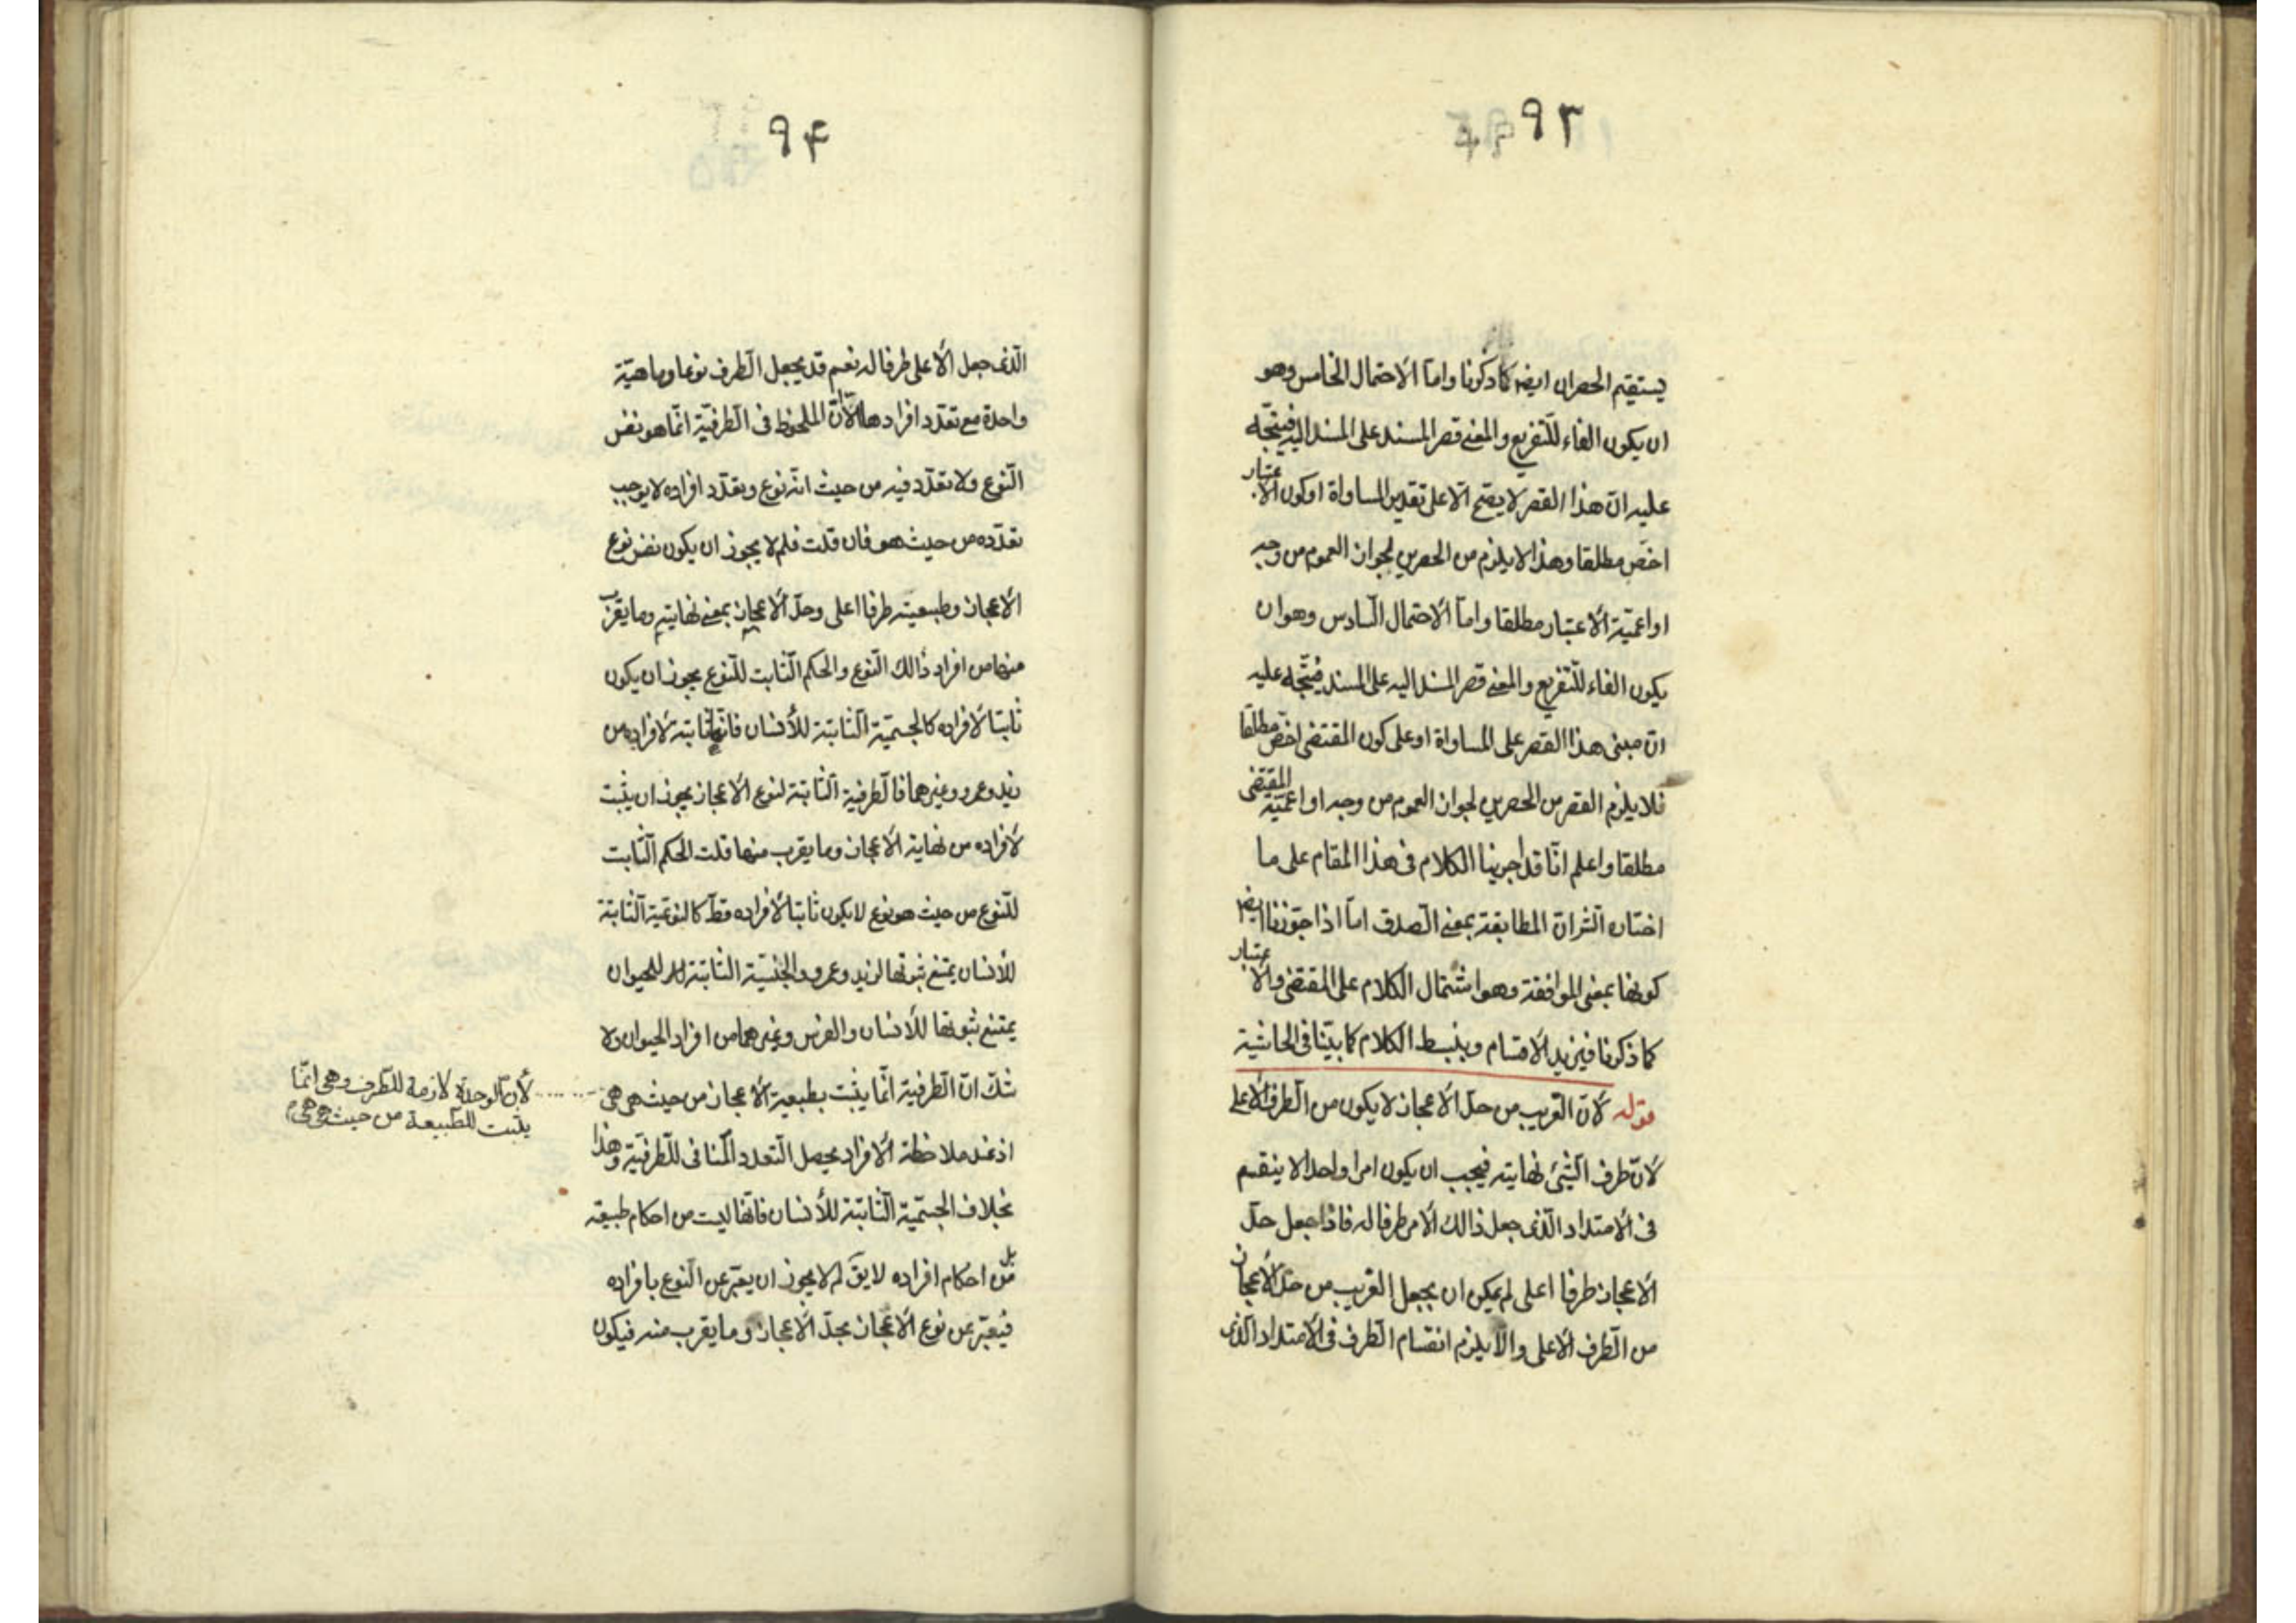 ٩٣
يستقيم الحصران ايضا كما ذكرنا وامّا الاحتمال الخامس وهو
ان يكون الفاء للتفريع والمعنى قصر المسند على المسند اليه فيتّجه
عليه انّ هذا القصر لا يصحّ الّا على تقدير المساواة او كون الاعتبار
اخصّ مطلقا وهذا لا يلزم من الحصرين لجواز العموم من وجه
او اعميّة الاعتبار مطلقا وامّا الاحتمال السّادس وهو ان
يكون الفاء للتّفريع والمعنى قصر المسند اليه على المسند فيتّجه عليه
انّ مبنى هذا القصر على المساواة او على كون المقتضى اخصّ مطلقا
فلا يلزم القصر من الحصرين لجواز العموم من وجه او اعميّة المقتضى
مطلقا واعلم انّا قد اجرينا الكلام فى هذا المقام على ما
اختاره الشّر انّ المطابقة بمعنى الصّدق امّا اذا جوّزنا ايضا
كونها بمعنى الموافقة وهو اشتمال الكلام على المقتضى والاعتبار
كما ذكرنا فيزيد الاقسام وينبسط الكلام كما بيّنا فى الحاشية
قوله لانّ القريب من حدّ الاعجاز لا يكون من الطّرف الاعلى
لانّ طرف الشّئ نهايته فيجب ان يكون امرا واحدا لا ينقسم
فى الامتداد الّذى جعل ذالك الامر طرفا له فاذا جعل حدّ
الاعجاز طرفا اعلى لم يمكن ان يجعل القريب من حدّ الاعجاز
من الطّرف الاعلى والّا يلزم انقسام الطّرف فى الامتداد الّذى
٩۴
الّذى جعل الاعلى طرفا له نعم قد يجعل الطّرف نوعا وماهيّة
واحدة مع تعدّد افرادها لانّ الملحوظ فى الطّرفيّة انّما هو نفس
النّوع ولا تعدّد فيه من حيث انّه نوع وتعدّد افراده لا يوجب
تعدّده من حيث هو فان قلت فلم لا يجوز ان يكون نفس نوع
الاعجاز وطبيعته طرفا اعلى وحدّ الاعجاز بمعنى نهايته وما يقرب
منها من افراد ذالك النّوع والحكم الثّابت للنّوع يجوز ان يكون
ثابتا لافراده كالجسميّة الثّابتة للأنسان فانّها ثابتة لافراده من
زيد وعمرو وغيرهما فالطّرفية الثّابتة لنوع الاعجاز يجوز ان يثبت
لافراده من نهاية الاعجاز وما يقرب منها قلت الحكم الثّابت
للنّوع من حيث هو نوع لا يكون ثابتا لافراده قطّ كالنوعيّة الثّابتة
للأنسان يمتنع ثبوتها لزيد وعمرو والجنسيّة الثّابتة للحيوان
يمتنع ثبوتها للأنسان والفرس وغيرهما من افراد الحيوان ولا
شكّ انّ الطّرفية انّما يثبت بطبيعة الاعجاز من حيث هى هى
لأنّ الوحدة لازمة للطّرف وهى انّما
يثبت للطّبيعة من حيث هى هى
اذ عند ملاحظة الافراد يحصل التّعدد المنافى للطّرفيّة وهذا
بخلاف الجسميّة الثّابتة للأنسان فانّها ليست من احكام طبيعته
بل من احكام افراده لا يقَ لم لا يجوز ان يعبّر عن النّوع بافراده
فيعبّر عن نوع الاعجاز بحدّ الاعجاز وما يقرب منه فيكون